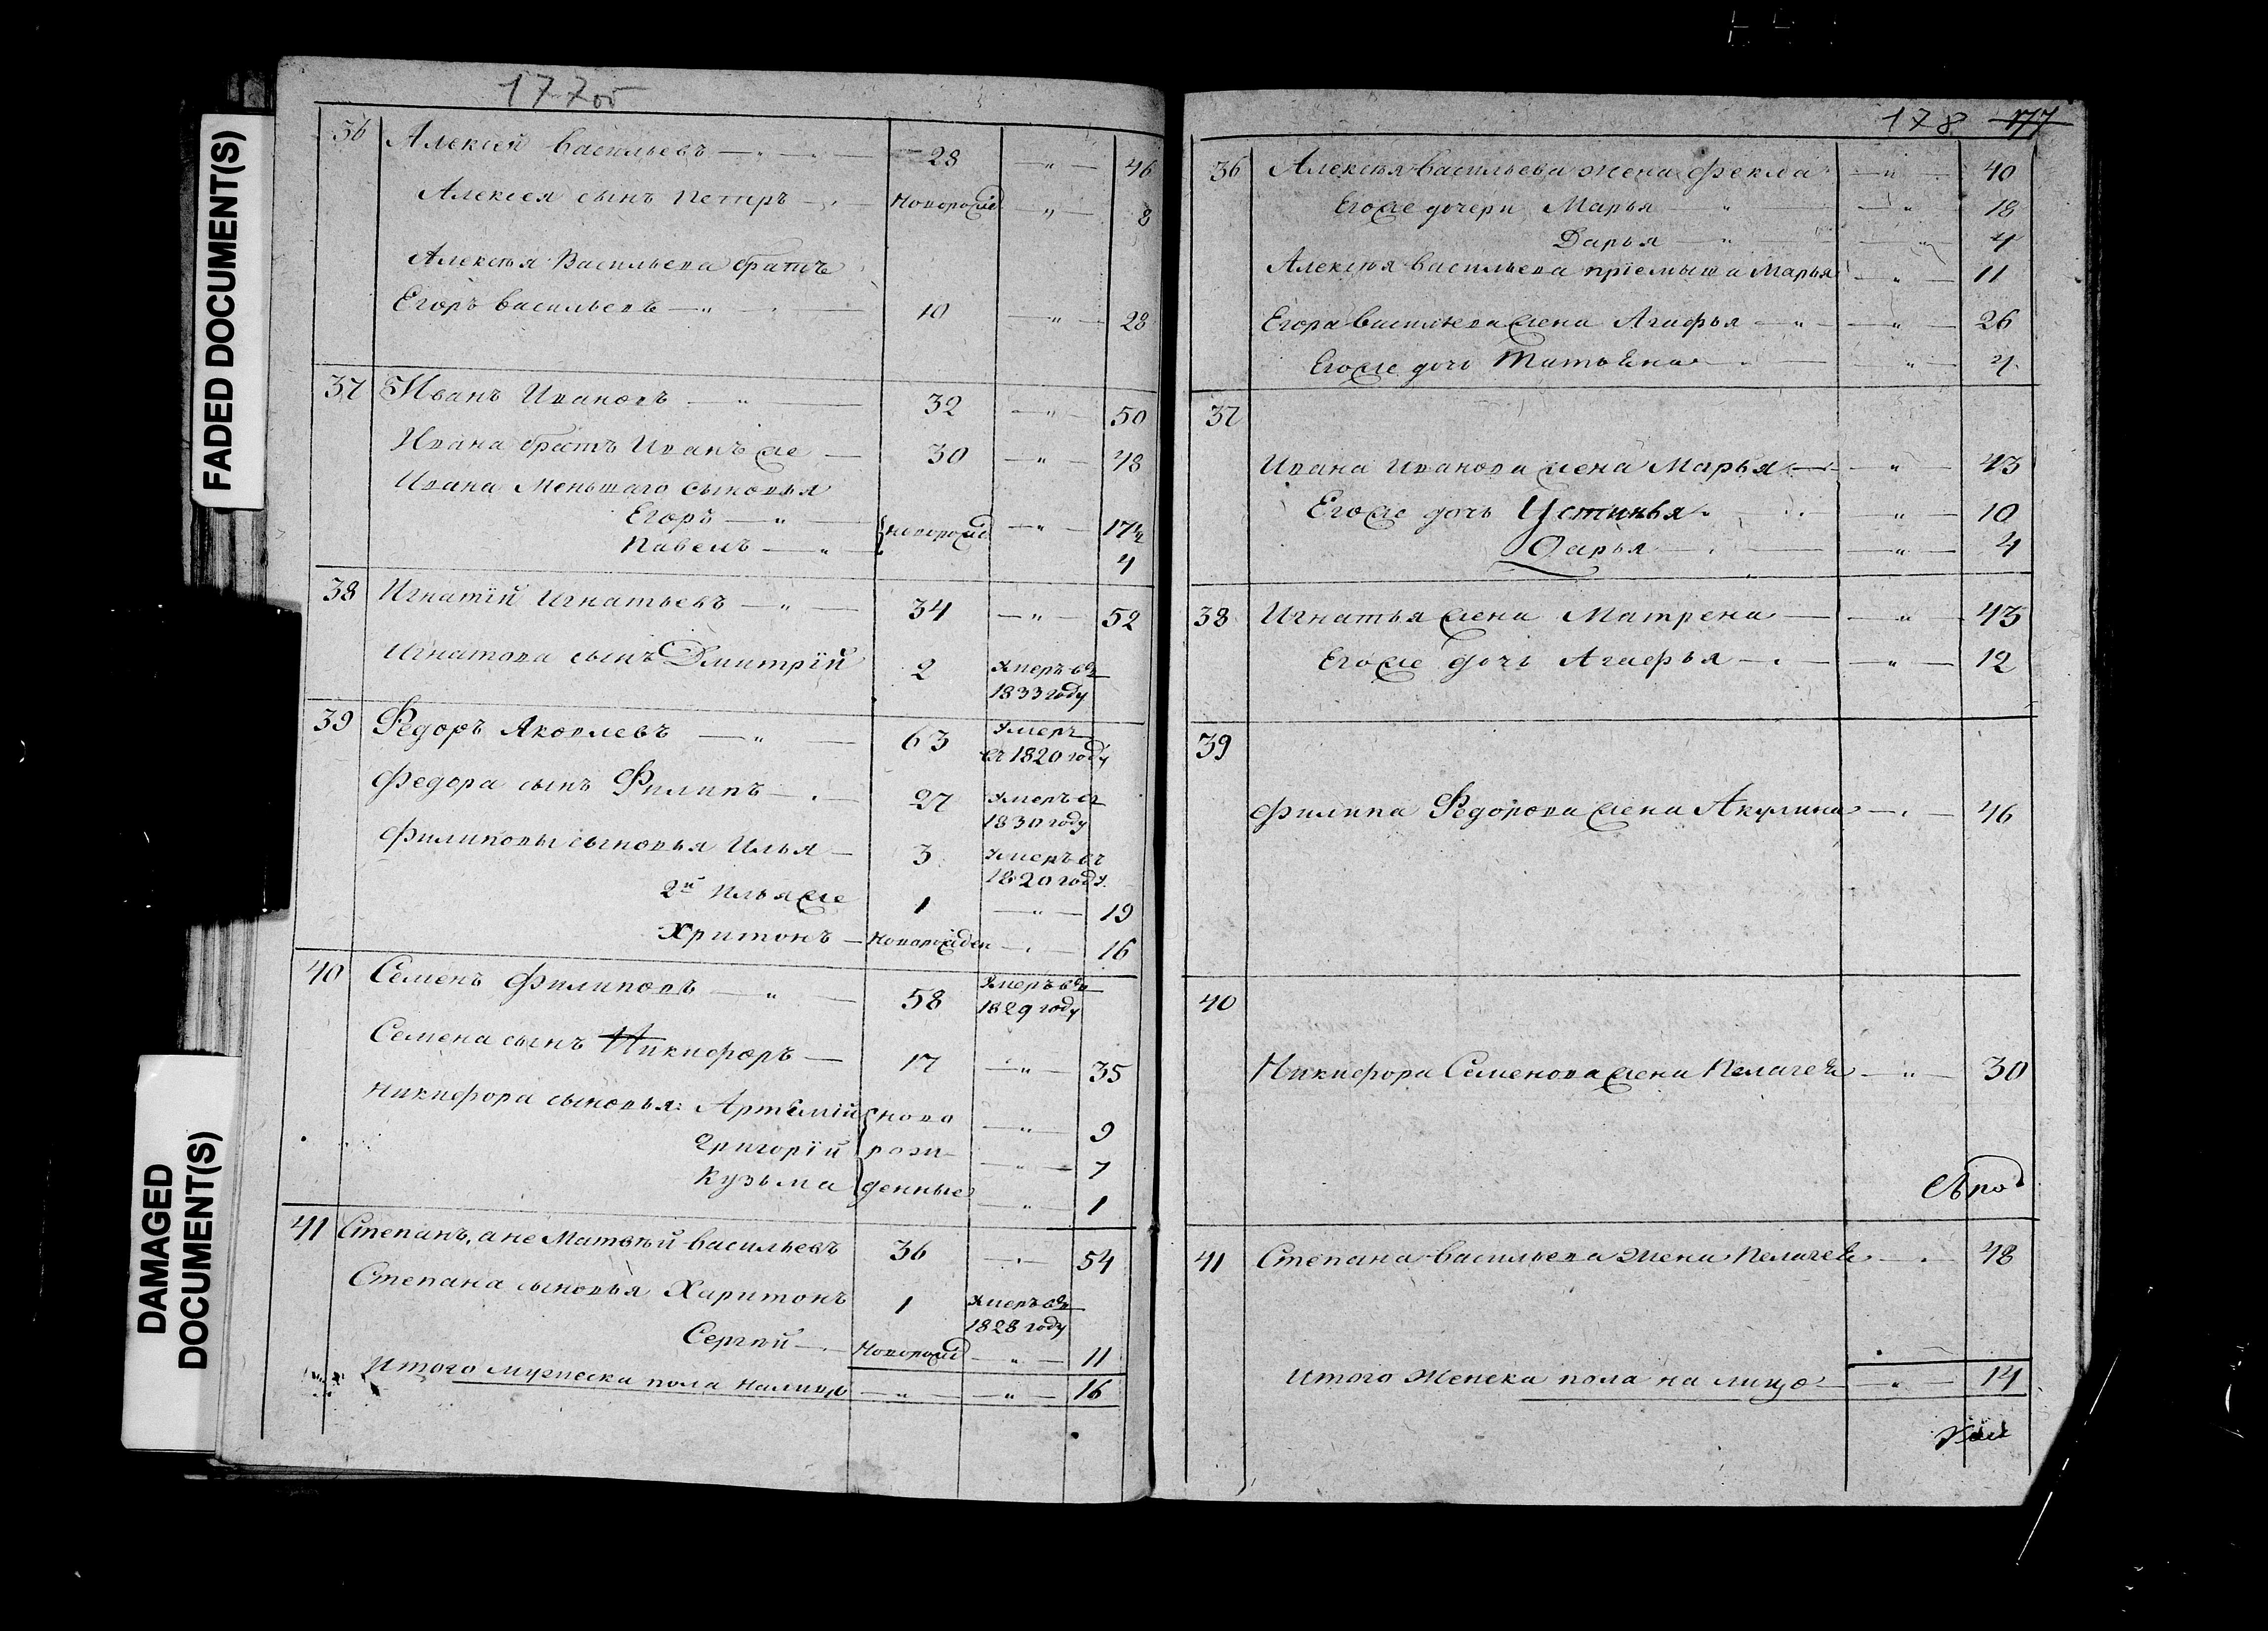 FADED DOCUMENT(S)
DAMAGED
DOCUMENT(S)
177об
36 Алексей Васильевъ — „ — 28 — „ — 46
Алексея сынъ Петръ — Новорожд — „ — 8
Алексѣя Васильева братъ
Егоръ Васильевъ — „ — 10 — „ — 28
37 Иванъ Ивановъ — „ — 32 — „ — 50
Ивана братъ Иванъ же — 30 — „ — 48
Ивана Меньшаго сыновья
Егоръ — „ — новорожд — „ — 17½
Павелъ — „ 4
38 Игнатій Игнатьевъ — „ — 34 — „ — 52
Игнатова сынъ Дмитрій 2 Умеръ въ
1833 году
39 Федоръ Яковлевъ — „ — 63 Умеръ
въ 1820 году
Федора сынъ Филипъ — 27 Умеръ въ
1830 году
Филиповы сыновья Илья — 3 Умеръ въ
1820 году
2й Илья же 1 — „ — 19
Хритонъ — Новорожден — 16
40 Семенъ Филиповъ — „ — 58 Умеръ въ
1829 году
Семена сынъ Никифоръ — 17 — „ — 35
Никифора сыновья: Артемій ново — „ — 9
Григорій рож — „ — 7
Кузьма денные — „ — 1
41 Степанъ, а не Матвѣй Васильевъ 36 — „ — 54
Степана сыновья Харитонъ 1 Умеръ въ
1828 году
Сергѣй — Новорожд — „ — 11
Итого мужеска пола налицо — „ — „ — 16
178 177
36 Алексѣя Васильева жена Фекла — „ — 40
Его же дочери Марья „ — „ — 18
Дарья — „ — „ — 4
Алексѣя Васильева пріемыша Марья — „ — 11
Егора Васильева жена Агафья — „ — „ — 26
Его же дочь Татьяна — „ — 4
37
Ивана Иванова жена Марья — „ — 43
Его же дочь Устинья — „ — 10
Дарья — „ — 4
38 Игнатья жена Матрена — „ — 43
Его же дочь Агафья — „ — 12
39
Филипа Федорова жена Акулина — 46
40
Никифора Семенова жена Пелагея — „ — 30
41 Степана Васильева жена Пелагея — 48
Итого Женска пола на лицо — „ — 14